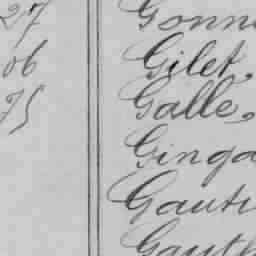 27 Gonn
06 Gilet,
75 Galle,
Ginga
Gauti
Gauth